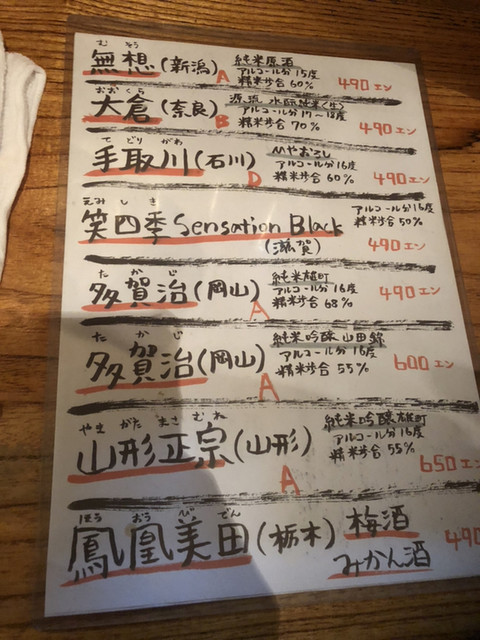 むそう
無想(新潟) A
純米原酒
アルコール分15度
精米歩合60%
490エン
おおくら
大倉(奈良) B
源流 水酛純米(生)
アルコール分17〜18度
精米歩合70%
490エン
てどりがわ
手取川(石川) D
アルコール分16度
精米歩合60%
490エン
えみしき
笑四季Sensation Black
(滋賀)
アルコール分16度
精米歩合50%
490エン
たかじ
多賀治(岡山) A
純米雄町
アルコール分16度
精米歩合68%
490エン
たかじ
多賀治(岡山) A
純米吟醸山田錦
アルコール分16度
精米歩合55%
600エン
やまがたまさむね
山形正宗(山形) A
純米吟醸雄町
アルコール分16度
精米歩合55%
650エン
ほうおうびでん
鳳凰美田(栃木)
梅酒
みかん酒
490